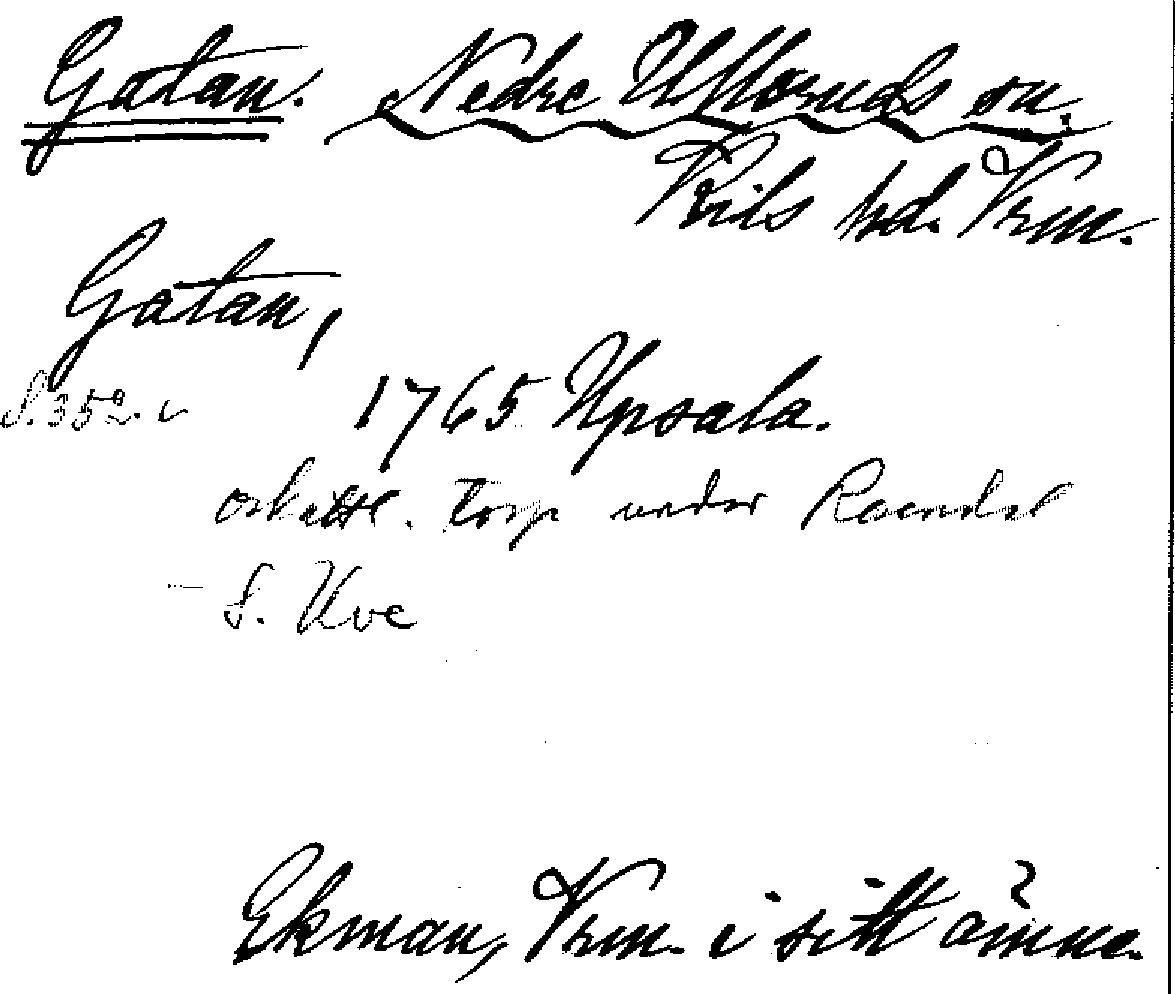 Gatan. Nedre Ulleruds sn.
Kils hd. Vrm.
Gatan,
S. 352.
1765 Upsala.
oskattl. torp under
S. Uve
Ekman, Vrm. i sitt ämne.